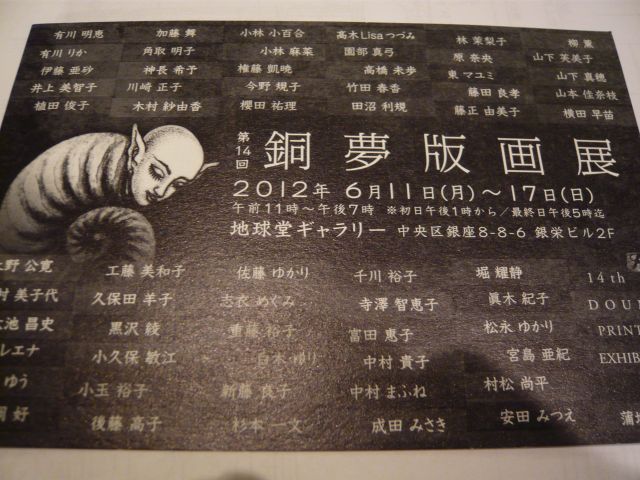 有川 明恵 加藤 舞 小林 小百合 高木Lisaつづみ 林 茉梨子 柳 薫
有川 りか 角取 明子 小林 麻菜 園部 真弓 原 奈央 山下 芙美子
伊藤 亜砂 神長 希予 権藤 凱暁 高橋 未歩 東 マユミ 山下 真穂
井上 美智子 川崎 正子 今野 規子 竹田 春香 藤田 良孝 山本 佳奈枝
植田 俊子 木村 紗由香 櫻田 祐理 田沼 利規 藤正 由美子 横田 早苗
第14回 銅夢版画展
2012年 6月11日(月)～17日(日)
午前11時～午後7時 ※初日午後1時から／最終日午後5時迄
地球堂ギャラリー 中央区銀座8-8-6 銀栄ビル2F
野 公寛 工藤 美和子 佐藤 ゆかり 千川 裕子 堀 耀静 14th
村 美子代 久保田 羊子 志衣 めぐみ 寺澤 智恵子 眞木 紀子 DOU
池 昌史 黒沢 綾 重藤 裕子 富田 惠子 松永 ゆかり PRINT
レエナ 小久保 敏江 白木 ゆり 中村 貴子 宮島 亜紀 EXHIB
ゆう 小玉 裕子 新藤 良子 中村 まふね 村松 尚平
岡 好 後藤 高子 杉本 一文 成田 みさき 安田 みつえ 蒲